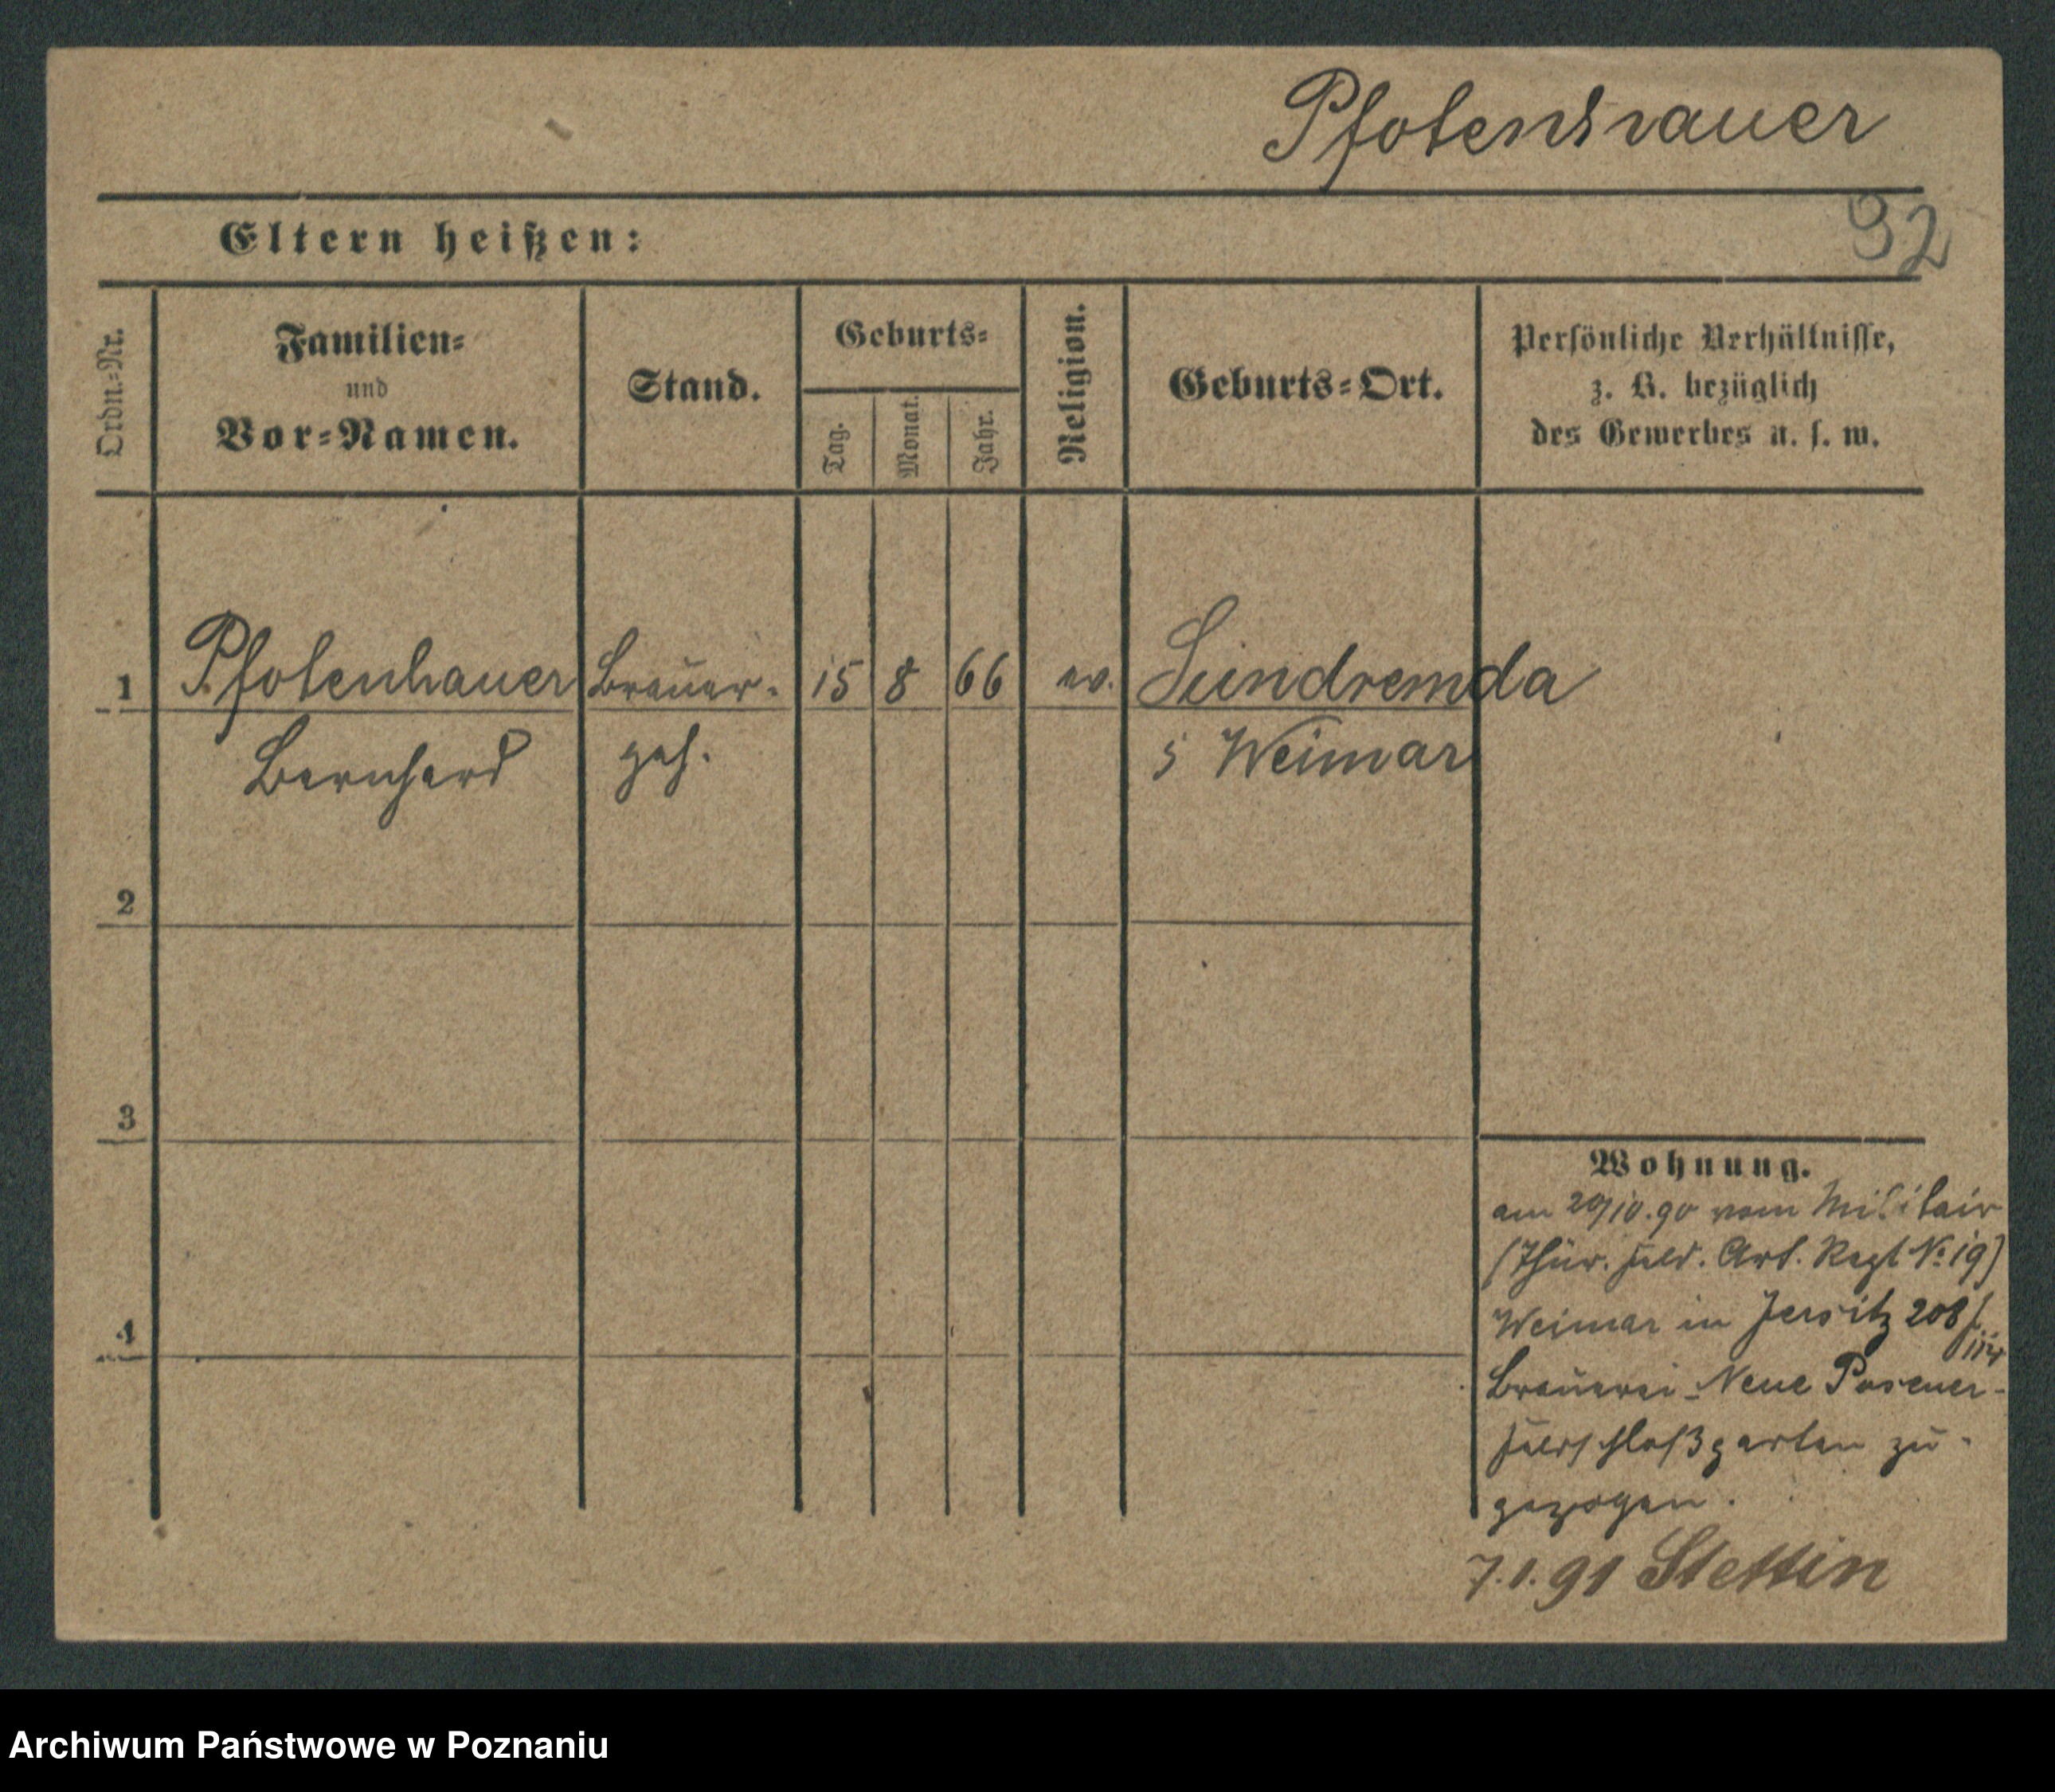 Pfotenhauer
32
Eltern heißen:
Ordn.=Nr.
Familien=
und
Vor=Namen.
Stand.
Geburts=
Tag.
Monat.
Jahr.
Religion.
Geburts=Ort.
Persönliche Verhältnisse,
z. B. bezüglich
des Gewerbes u. s. w.
1 Pfotenhauer Brauer- 15 8 66 ev. Sundremda
Bernhard geh. Weimar
2
3
4
Wohnung.
am 29/10.90 vom Militair
(Thür. Feld. Art. Regt No 19)
Weimar in Jersitz 208
Brauerei Neue Posener-
Feldschloßgarten zu-
gezogen.
7.1.91 Stettin
Archiwum Państwowe w Poznaniu